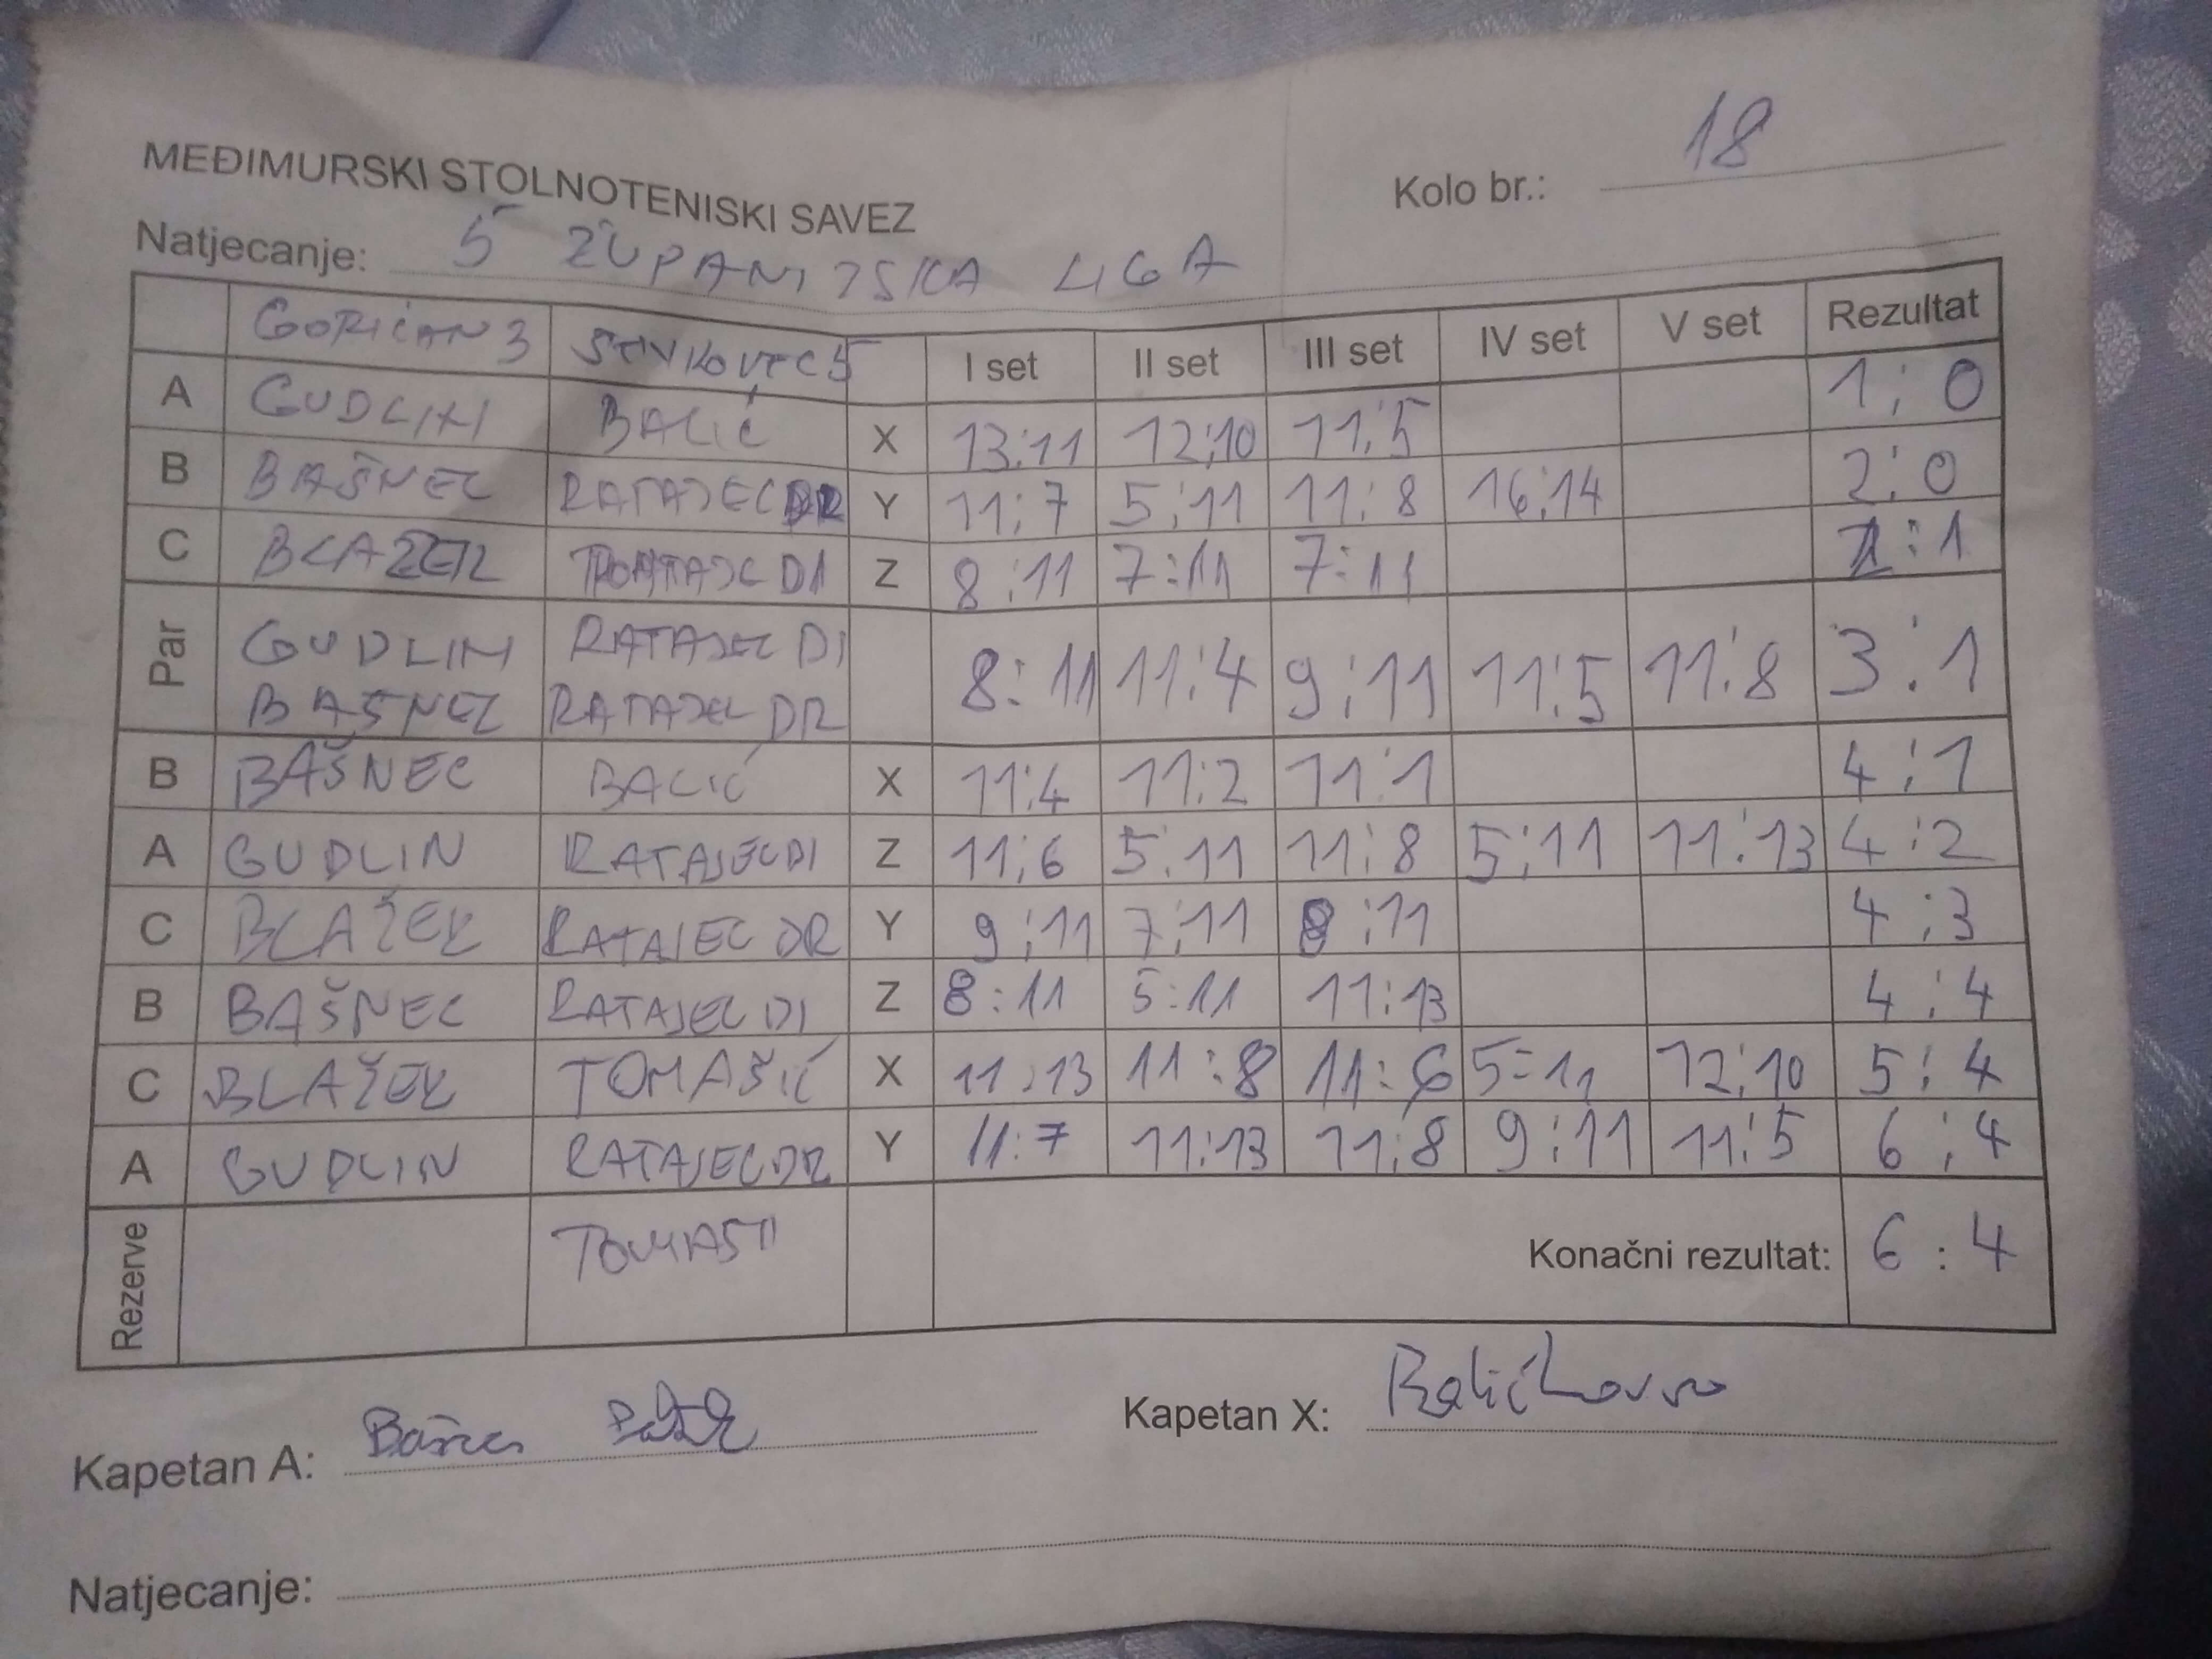 MEĐIMURSKI STOLNOTENISKI SAVEZ
Kolo br.: 18
Natjecanje: 5 ŽUPANIJSKA LIGA
GORIČAN 3 I set II set III set IV set V set Rezultat
A GUDLIN BALIĆ X 13:11 12:10 11:5 1:0
B BAŠNEC RATAJEC DR Y 11:7 5:11 11:8 16:14 2:0
C BLAŽEK DI Z 8:11 7:11 7:11 2:1
Par GUDLIN RATAJEC DI 8:11 11:4 9:11 11:5 11:8 3:1
BAŠNEC RATAJEC DR
B BAŠNEC BALIĆ X 11:4 11:2 11:1 4:1
A GUDLIN RATAJEC DI Z 11:6 5:11 11:8 5:11 11:13 4:2
C BLAŽEK RATAJEC DR Y 9:11 7:11 8:11 4:3
B BAŠNEC RATAJEC DI Z 8:11 5:11 11:13 4:4
C BLAŽEK TOMAŠIĆ X 11:13 11:8 11:6 5:11 12:10 5:4
A GUDLIN RATAJEC DR Y 11:7 11:13 11:8 9:11 11:5 6:4
Rezerve Konačni rezultat: 6:4
Kapetan A: Bašnec
Kapetan X: Balić
Natjecanje: